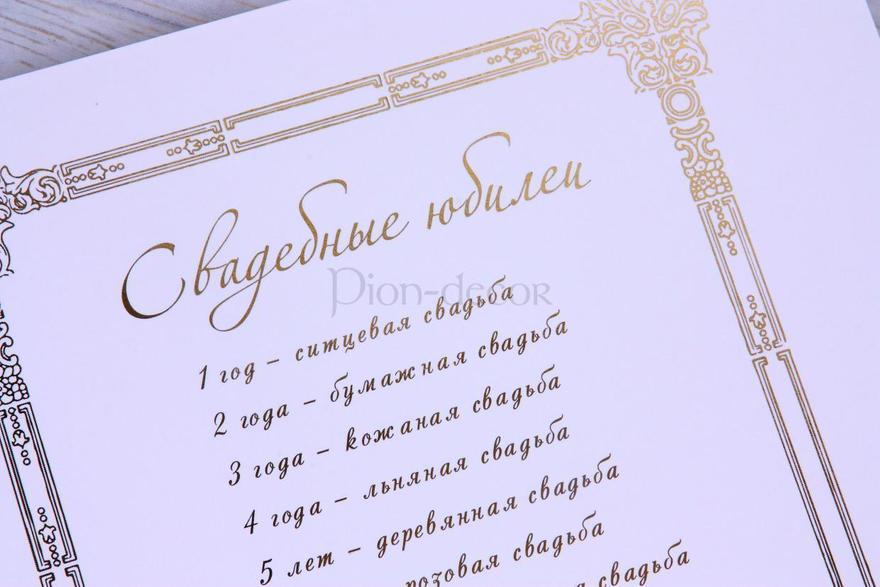 Свадебные юбилеи
Pion-decor
1 год – ситцевая свадьба
2 года – бумажная свадьба
3 года – кожаная свадьба
4 года – льняная свадьба
5 лет – деревянная свадьба
розовая свадьба
свадьба